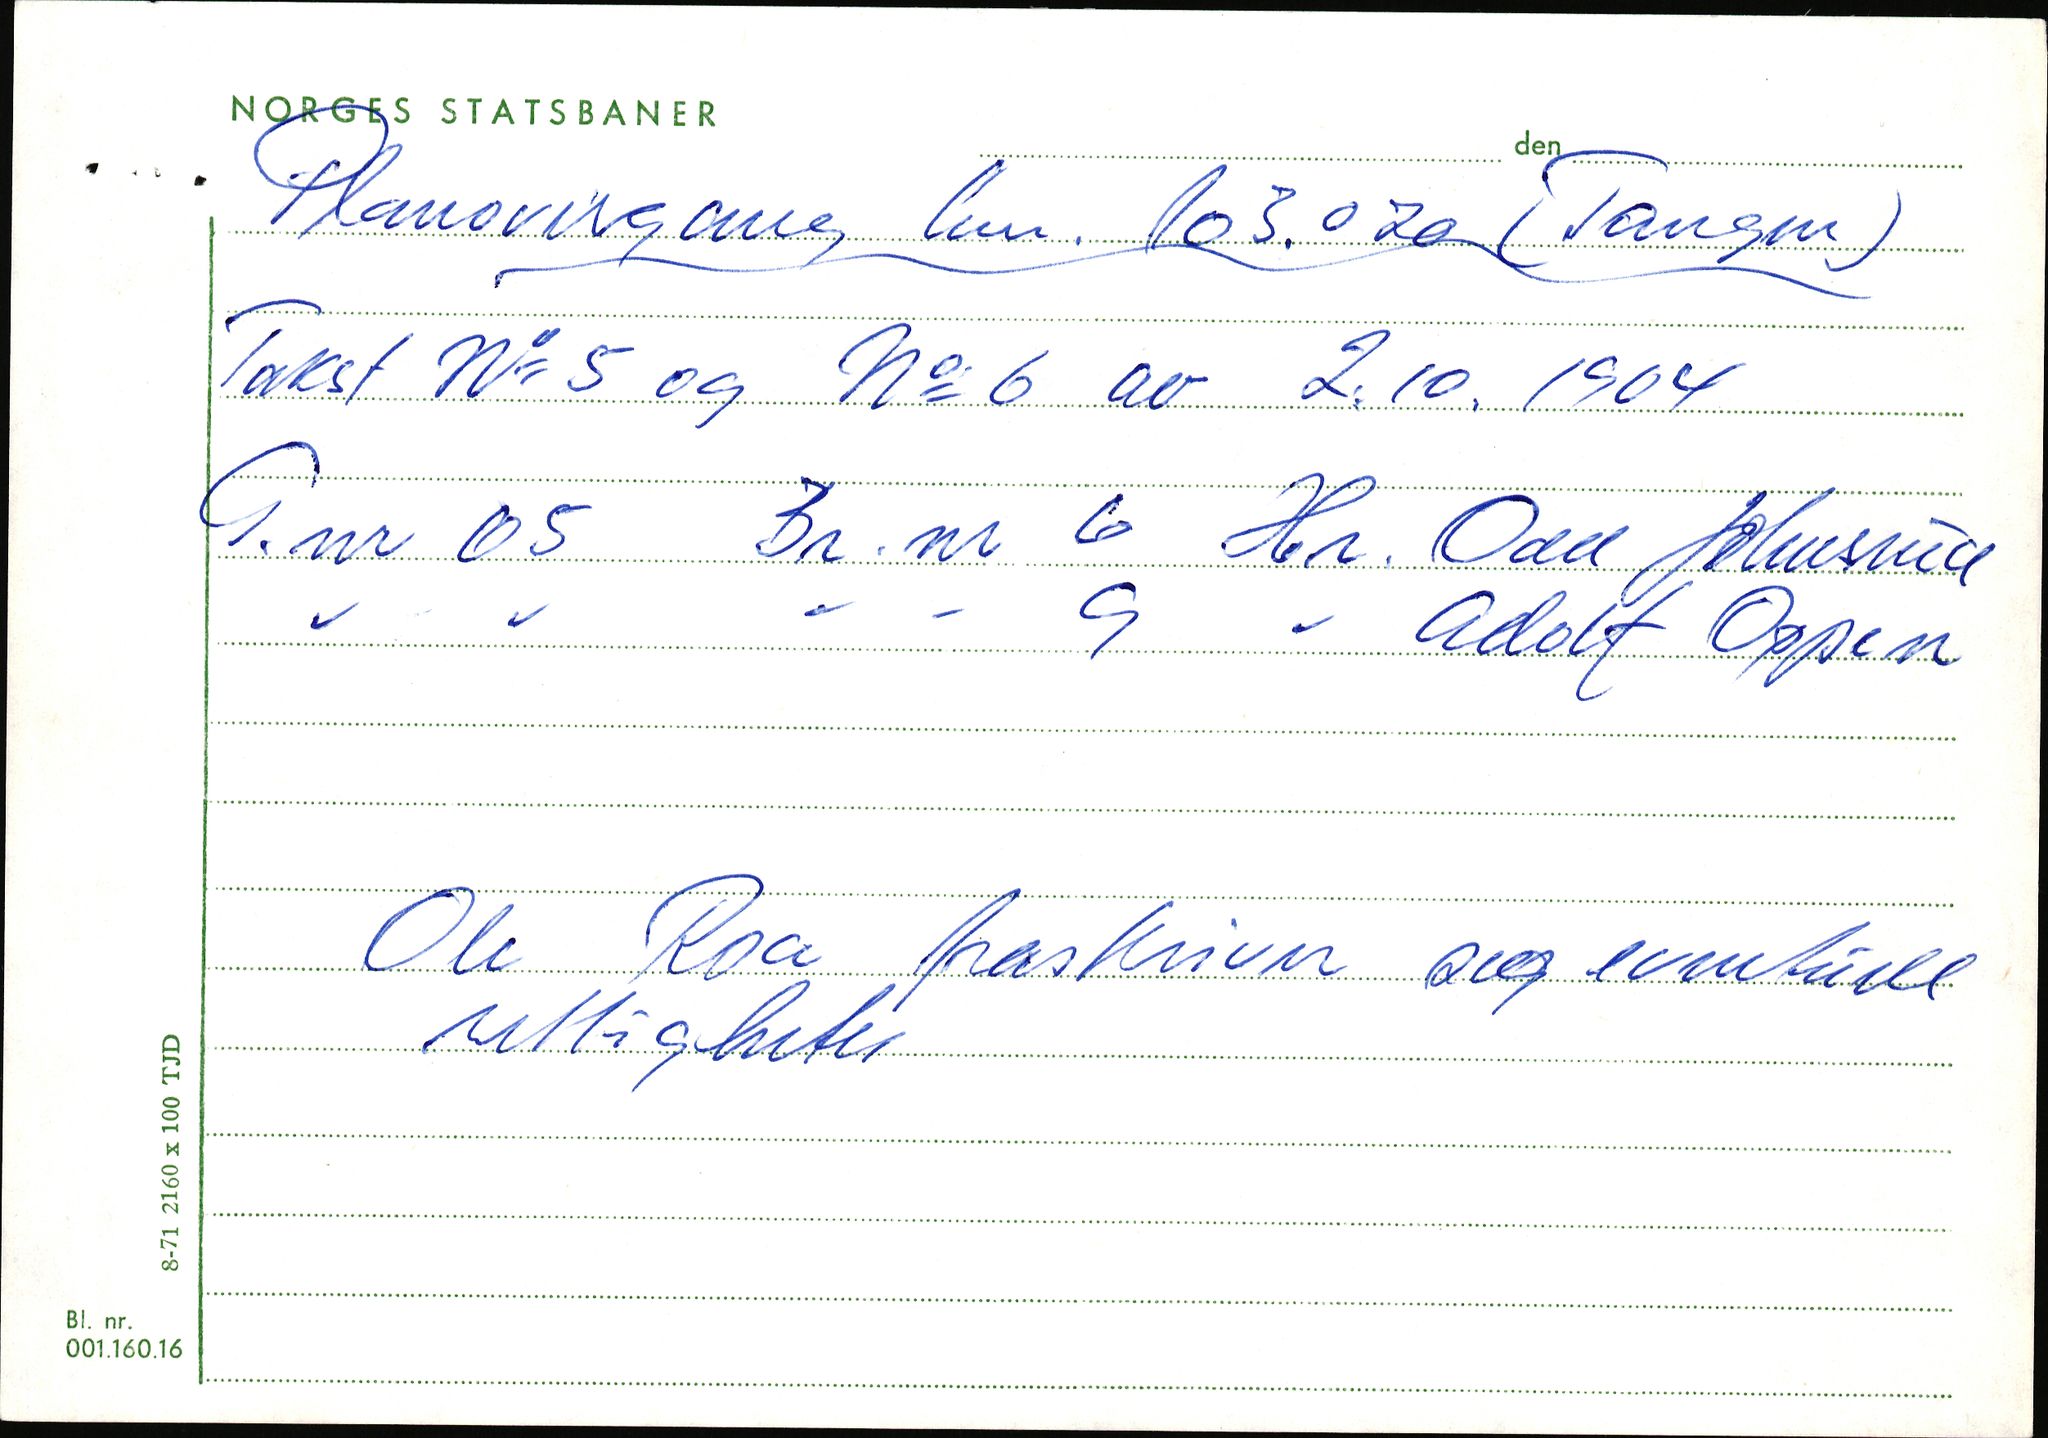 NORGES STATSBANER
den
Planovergang km. 103.020 (Tangen)
Takst Nº 5 og Nº 6 av 2.10.1904
G.nr 65 Br.nr 6 Hr. Odd Johnsrud
" " " " 9 " Adolf Oppen
Ole Roa fraskriver seg eventuell
rettigheter
8-71 2160 x 100 TJD
Bl. nr.
001.160.16